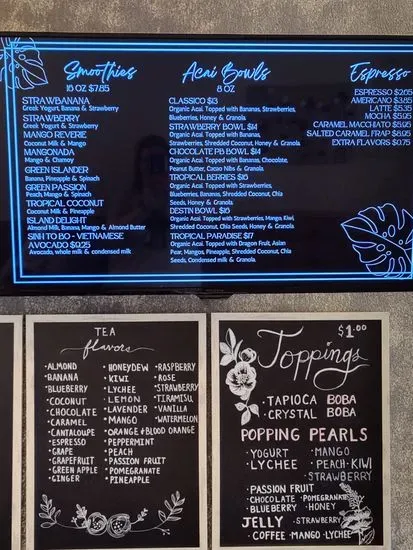 Smoothies
16 OZ $7.85
STRAWBANANA
Greek Yogurt, Banana & Strawberry
STRAWBERRY
Greek Yogurt & Strawberry
MANGO REVERIE
Coconut Milk & Mango
MANGONADA
Mango & Chamoy
GREEN ISLANDER
Banana, Pineapple & Spinach
GREEN PASSION
Peach, Mango & Spinach
TROPICAL COCONUT
Coconut Milk & Pineapple
ISLAND DELIGHT
Almond Milk, Banana, Mango & Almond Butter
SINH TO BO - VIETNAMESE
AVOCADO $9.25
Avocado, whole milk & condensed milk
Acai Bowls
8 OZ
CLASSICO $13
Organic Acai. Topped with Bananas, Strawberries,
Blueberries, Honey & Granola.
STRAWBERRY BOWL $14
Organic Acai. Topped with Bananas,
Strawberries, Shredded Coconut, Honey & Granola
CHOCOLATE PB BOWL $14
Organic Acai. Topped with Banana, Chocolate,
Peanut Butter, Cacao Nibs & Granola.
TROPICAL BERRIES $16
Organic Acai. Topped with Strawberries,
Blueberries, Bananas, Shredded Coconut, Chia
Seeds, Honey & Granola.
DESTIN BOWL $16
Organic Acai. Topped with Strawberries, Mango, Kiwi,
Shredded Coconut, Chia Seeds, Honey & Granola.
TROPICAL PARADISE $17
Organic Acai. Topped with Dragon Fruit, Asian
Pear, Mangos, Pineapple, Shredded Coconut, Chia
Seeds, Condensed milk & Granola.
Espresso
ESPRESSO $2.65
AMERICANO $3.85
LATTE $5.35
MOCHA $5.95
CARAMEL MACCHIATO $5.95
SALTED CARAMEL FRAP $8.95
EXTRA FLAVORS $0.75
TEA
flavors
•ALMOND
•BANANA
•BLUEBERRY
•COCONUT
•CHOCOLATE
•CARAMEL
•CANTALOUPE
•ESPRESSO
•GRAPE
•GRAPEFRUIT
•GREEN APPLE
•GINGER
•HONEYDEW
•KIWI
•LYCHEE
•LEMON
•LAVENDER
•MANGO
•ORANGE •BLOOD ORANGE
•PEPPERMINT
•PEACH
•PASSION FRUIT
•POMEGRANATE
•PINEAPPLE
•RASPBERRY
•ROSE
•STRAWBERRY
•TIRAMISU
•VANILLA
•WATERMELON
$1.00
Toppings
•TAPIOCA BOBA
•CRYSTAL BOBA
POPPING PEARLS
•YOGURT •MANGO
•LYCHEE •PEACH •KIWI
•STRAWBERRY
•PASSION FRUIT
•CHOCOLATE •POMEGRANATE
•BLUEBERRY •HONEY
JELLY •STRAWBERRY
•COFFEE •MANGO •LYCHEE